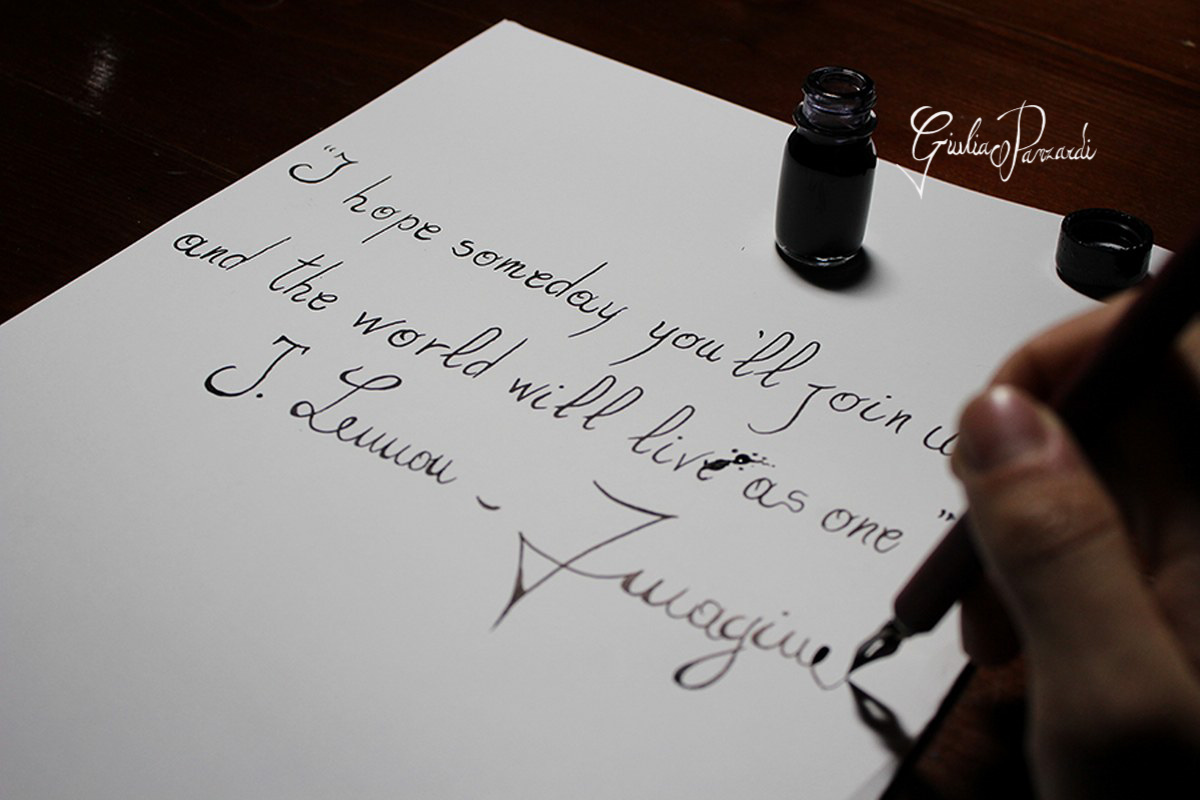 "I hope someday you'll join u
and the world will live as one"
J. Lennon - Imagine
Giulia Panzardi